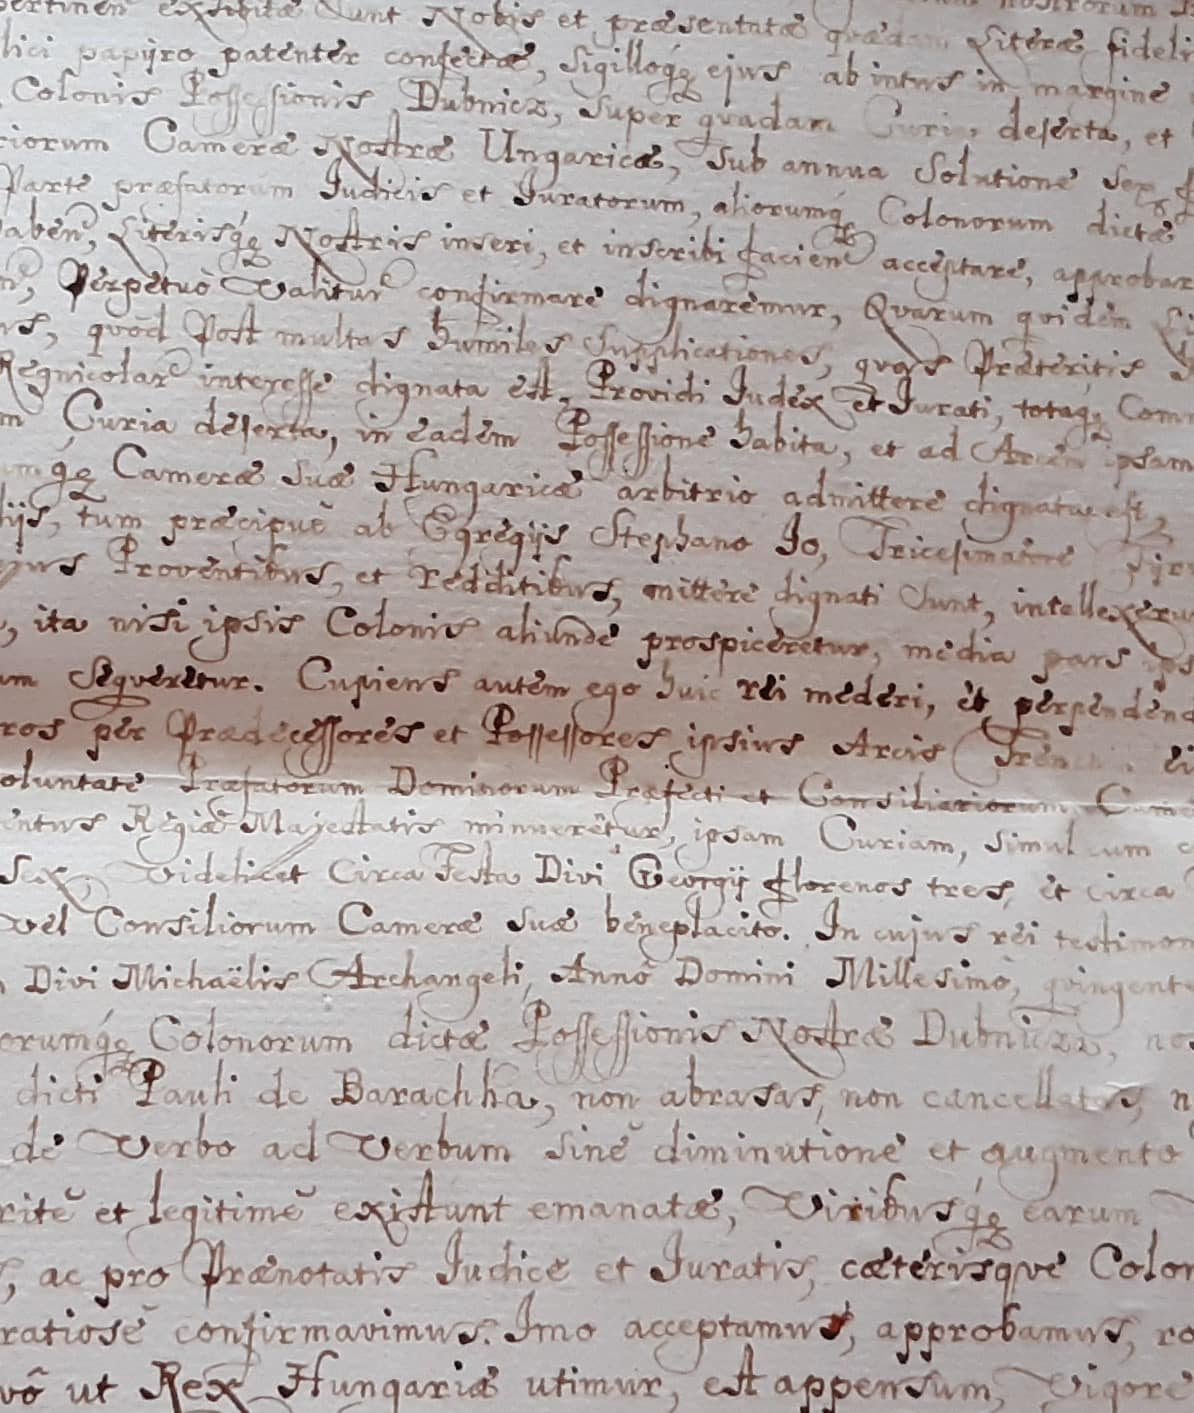 pertinen exhibitæ sunt Nobis et præsentatæ quædam Literæ fideli
lici papÿro patenter confectæ, sigilloqȝ ejus ab intus in margine
Colonis Possessionis Dubnicz, super quadam Curia deserta, et
riorum Cameræ Nostræ Ungaricæ, sub annua Solutione sex
Parte præfatorum Judicis et Juratorum, aliorumqȝ Colonorum dictæ
haben, Literisqȝ Nostris inseri, et inscribi facien acceptare, approbar
Perpetuò Valitur confirmare dignaremur, Qvarum qvidem
quòd Post multas humiles Supplicationes, qvas Præteritis
Regnicolar interesse dignata est, Providi Judex et Jurati, totaqȝ Com
m Curia deserta, in eadem Possessione habita, et ad Arcem ipsam
umqȝ Cameræ Suæ Hungaricæ arbitrio admittere dignatus est,
iijs, tum præcipuè ab Egregijs Stephano Jo, Tricesimatore
ejus Proventibus, et redditibus, mittere dignati sunt, intellexeru
ita nisi ipsis Colonis aliunde prospiceretur, media pars ips
um Seqveretur. Cupiens autem ego huic rei mederi, et perpenden
ros per Prædecessores et Possessores ipsius Arcis Trench. ei
oluntate Præfatorum Dominorum Præfecti et Consiliariorum Came
entus Regiæ Majestatis minueretur, ipsam Curiam, simul cum
sex, Videlicet Circa Festa Divi Georgij florenos tres, et circa
vel Consiliorum Cameræ suæ beneplacito. In cujus rei testimon
Divi Michaëlis Archangeli, Anno Domini Millesimo, qvingent
orumqȝ Colonorum dictæ Possessionis Nostræ Dubnicz, no
dicti Pauli de Barachka, non abrasas, non cancellatas, n
de Verbo ad Verbum sine diminutione et augmento
ritè et legitimè existunt emanatæ, Viribusqȝ earum
ac pro Prænotatis Judice et Juratis, cæterisque Color
ratiosè confirmavimus. Imo acceptamus, approbamus, ra
vô ut Rex Hungariæ utimur, est appensum, Vigore